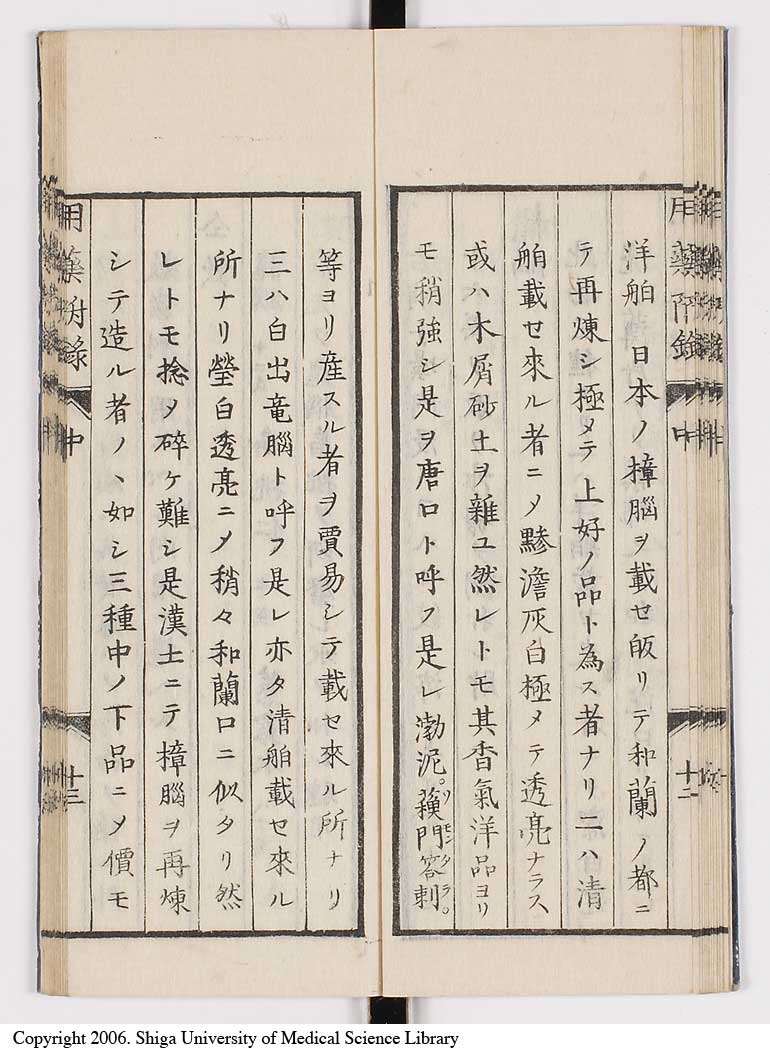 洋舶　日本ノ樟腦ヲ載セ皈リテ和蘭ノ都ニ
テ再煉シ極メテ上好ノ品ト為ス者ナリ二ハ清
舶載セ來ル者ニメ黲澹灰白極メテ透亮ナラス
或ハ木屑砂土ヲ雜ユ然レトモ其香氣洋品ヨリ
モ稍強シ是ヲ唐口ト呼フ是レ渤泥。門容剌。
用藥附錄
中
十二
等ヨリ産スル者ヲ賈易シテ載セ來ル所ナリ
三ハ白出竜腦ト呼フ是レ亦タ清舶載セ來ル
所ナリ瑩白透亮ニメ稍々和蘭口ニ似タリ然
レトモ捻メ碎ケ難シ是漢土ニテ樟腦ヲ再煉
シテ造ル者ノヽ如シ三種中ノ下品ニメ價モ
用藥附錄
中
十三
Copyright 2006. Shiga University of Medical Science Library